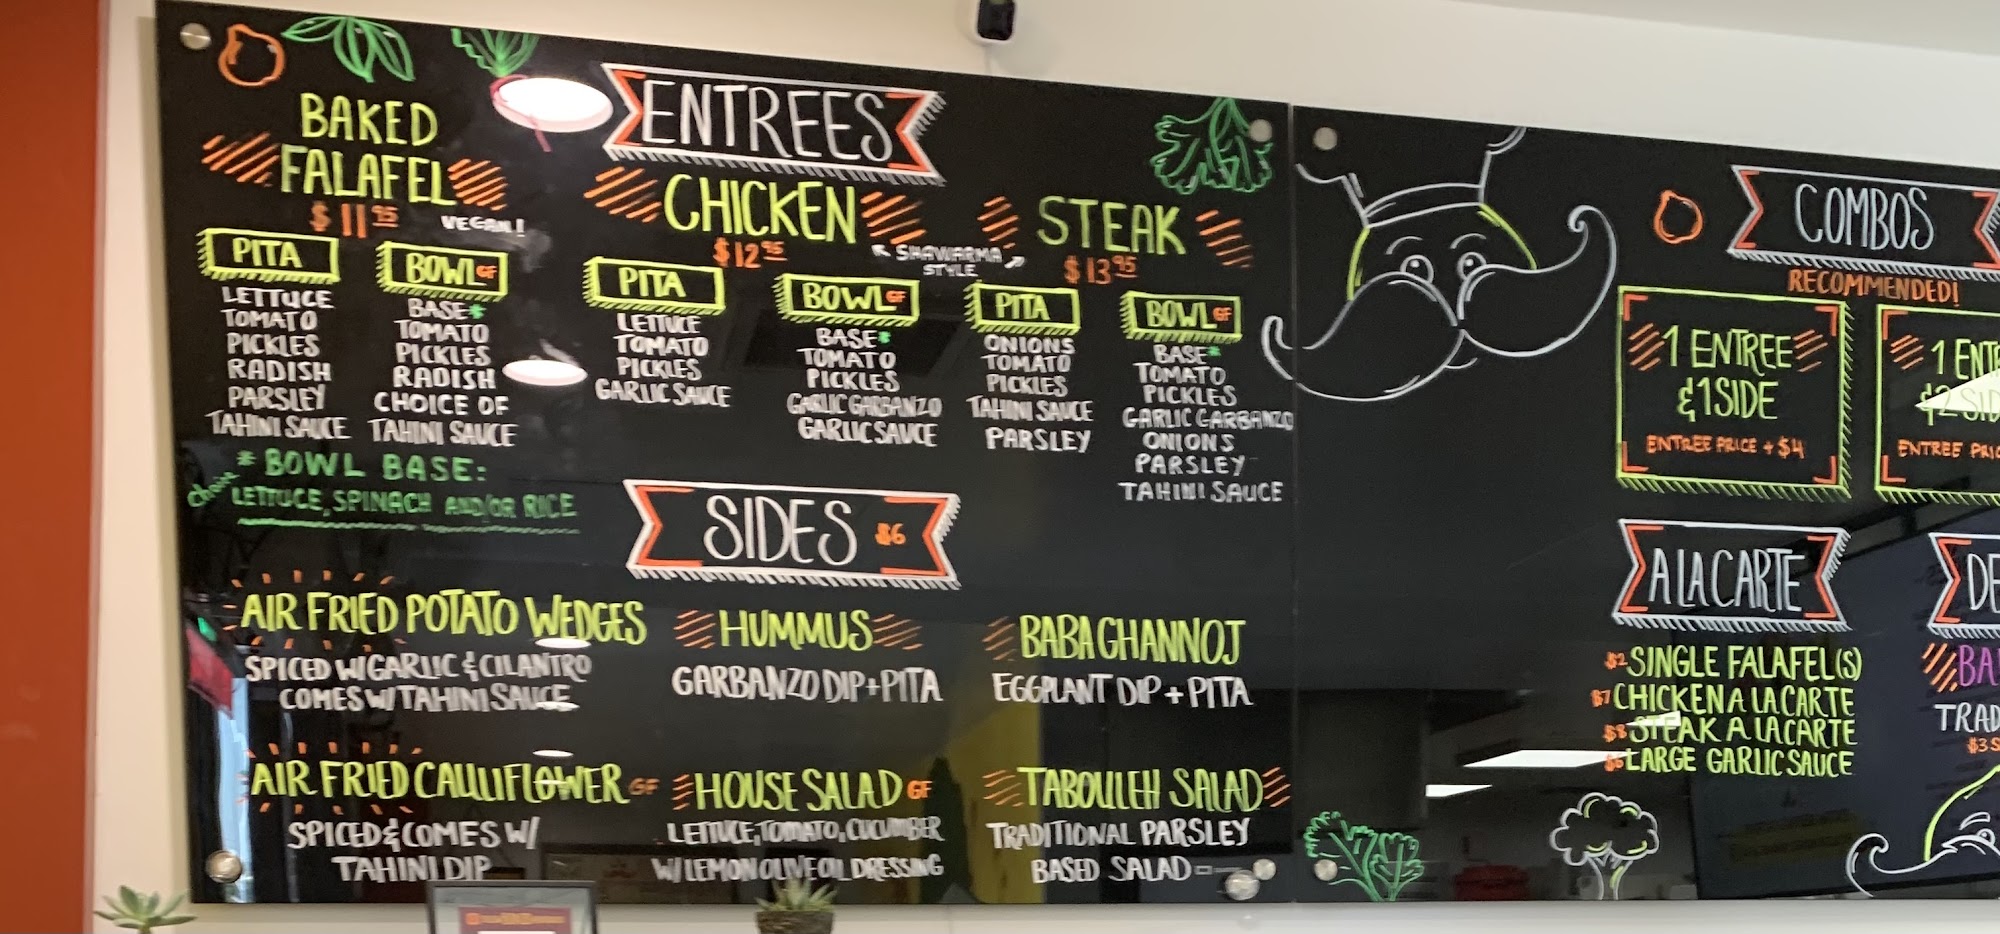 ENTREES
BAKED
FALAFEL
$11.95
VEGAN!
PITA
LETTUCE
TOMATO
PICKLES
RADISH
PARSLEY
TAHINI SAUCE
BOWL GF
BASE*
TOMATO
PICKLES
RADISH
CHOICE OF
TAHINI SAUCE
CHICKEN
$12.95
SHAWARMA
STYLE
PITA
LETTUCE
TOMATO
PICKLES
GARLIC SAUCE
BOWL GF
BASE*
TOMATO
PICKLES
GARLIC GARBANZO
GARLIC SAUCE
STEAK
$13.95
PITA
ONIONS
TOMATO
PICKLES
TAHINI SAUCE
PARSLEY
BOWL GF
BASE*
TOMATO
PICKLES
GARLIC GARBANZO
ONIONS
PARSLEY
TAHINI SAUCE
* BOWL BASE:
choose LETTUCE, SPINACH AND/OR RICE
SIDES $6
AIR FRIED POTATO WEDGES
SPICED W/GARLIC & CILANTRO
COMES W/TAHINI SAUCE
HUMMUS
GARBANZO DIP + PITA
BABA GHANNOJ
EGGPLANT DIP + PITA
AIR FRIED CAULIFLOWER GF
SPICED & COMES W/
TAHINI DIP
HOUSE SALAD GF
LETTUCE, TOMATO, CUCUMBER
W/LEMON OLIVE OIL DRESSING
TABOULEH SALAD
TRADITIONAL PARSLEY
BASED SALAD
COMBOS
RECOMMENDED!
1 ENTREE
& 1 SIDE
ENTREE PRICE + $4
1 ENT
& 2 SID
ENTREE PRIC
A LA CARTE
$2 SINGLE FALAFEL(S)
$7 CHICKEN A LA CARTE
$8 STEAK A LA CARTE
$6 LARGE GARLIC SAUCE
DE
BA
TRAD
$3 S